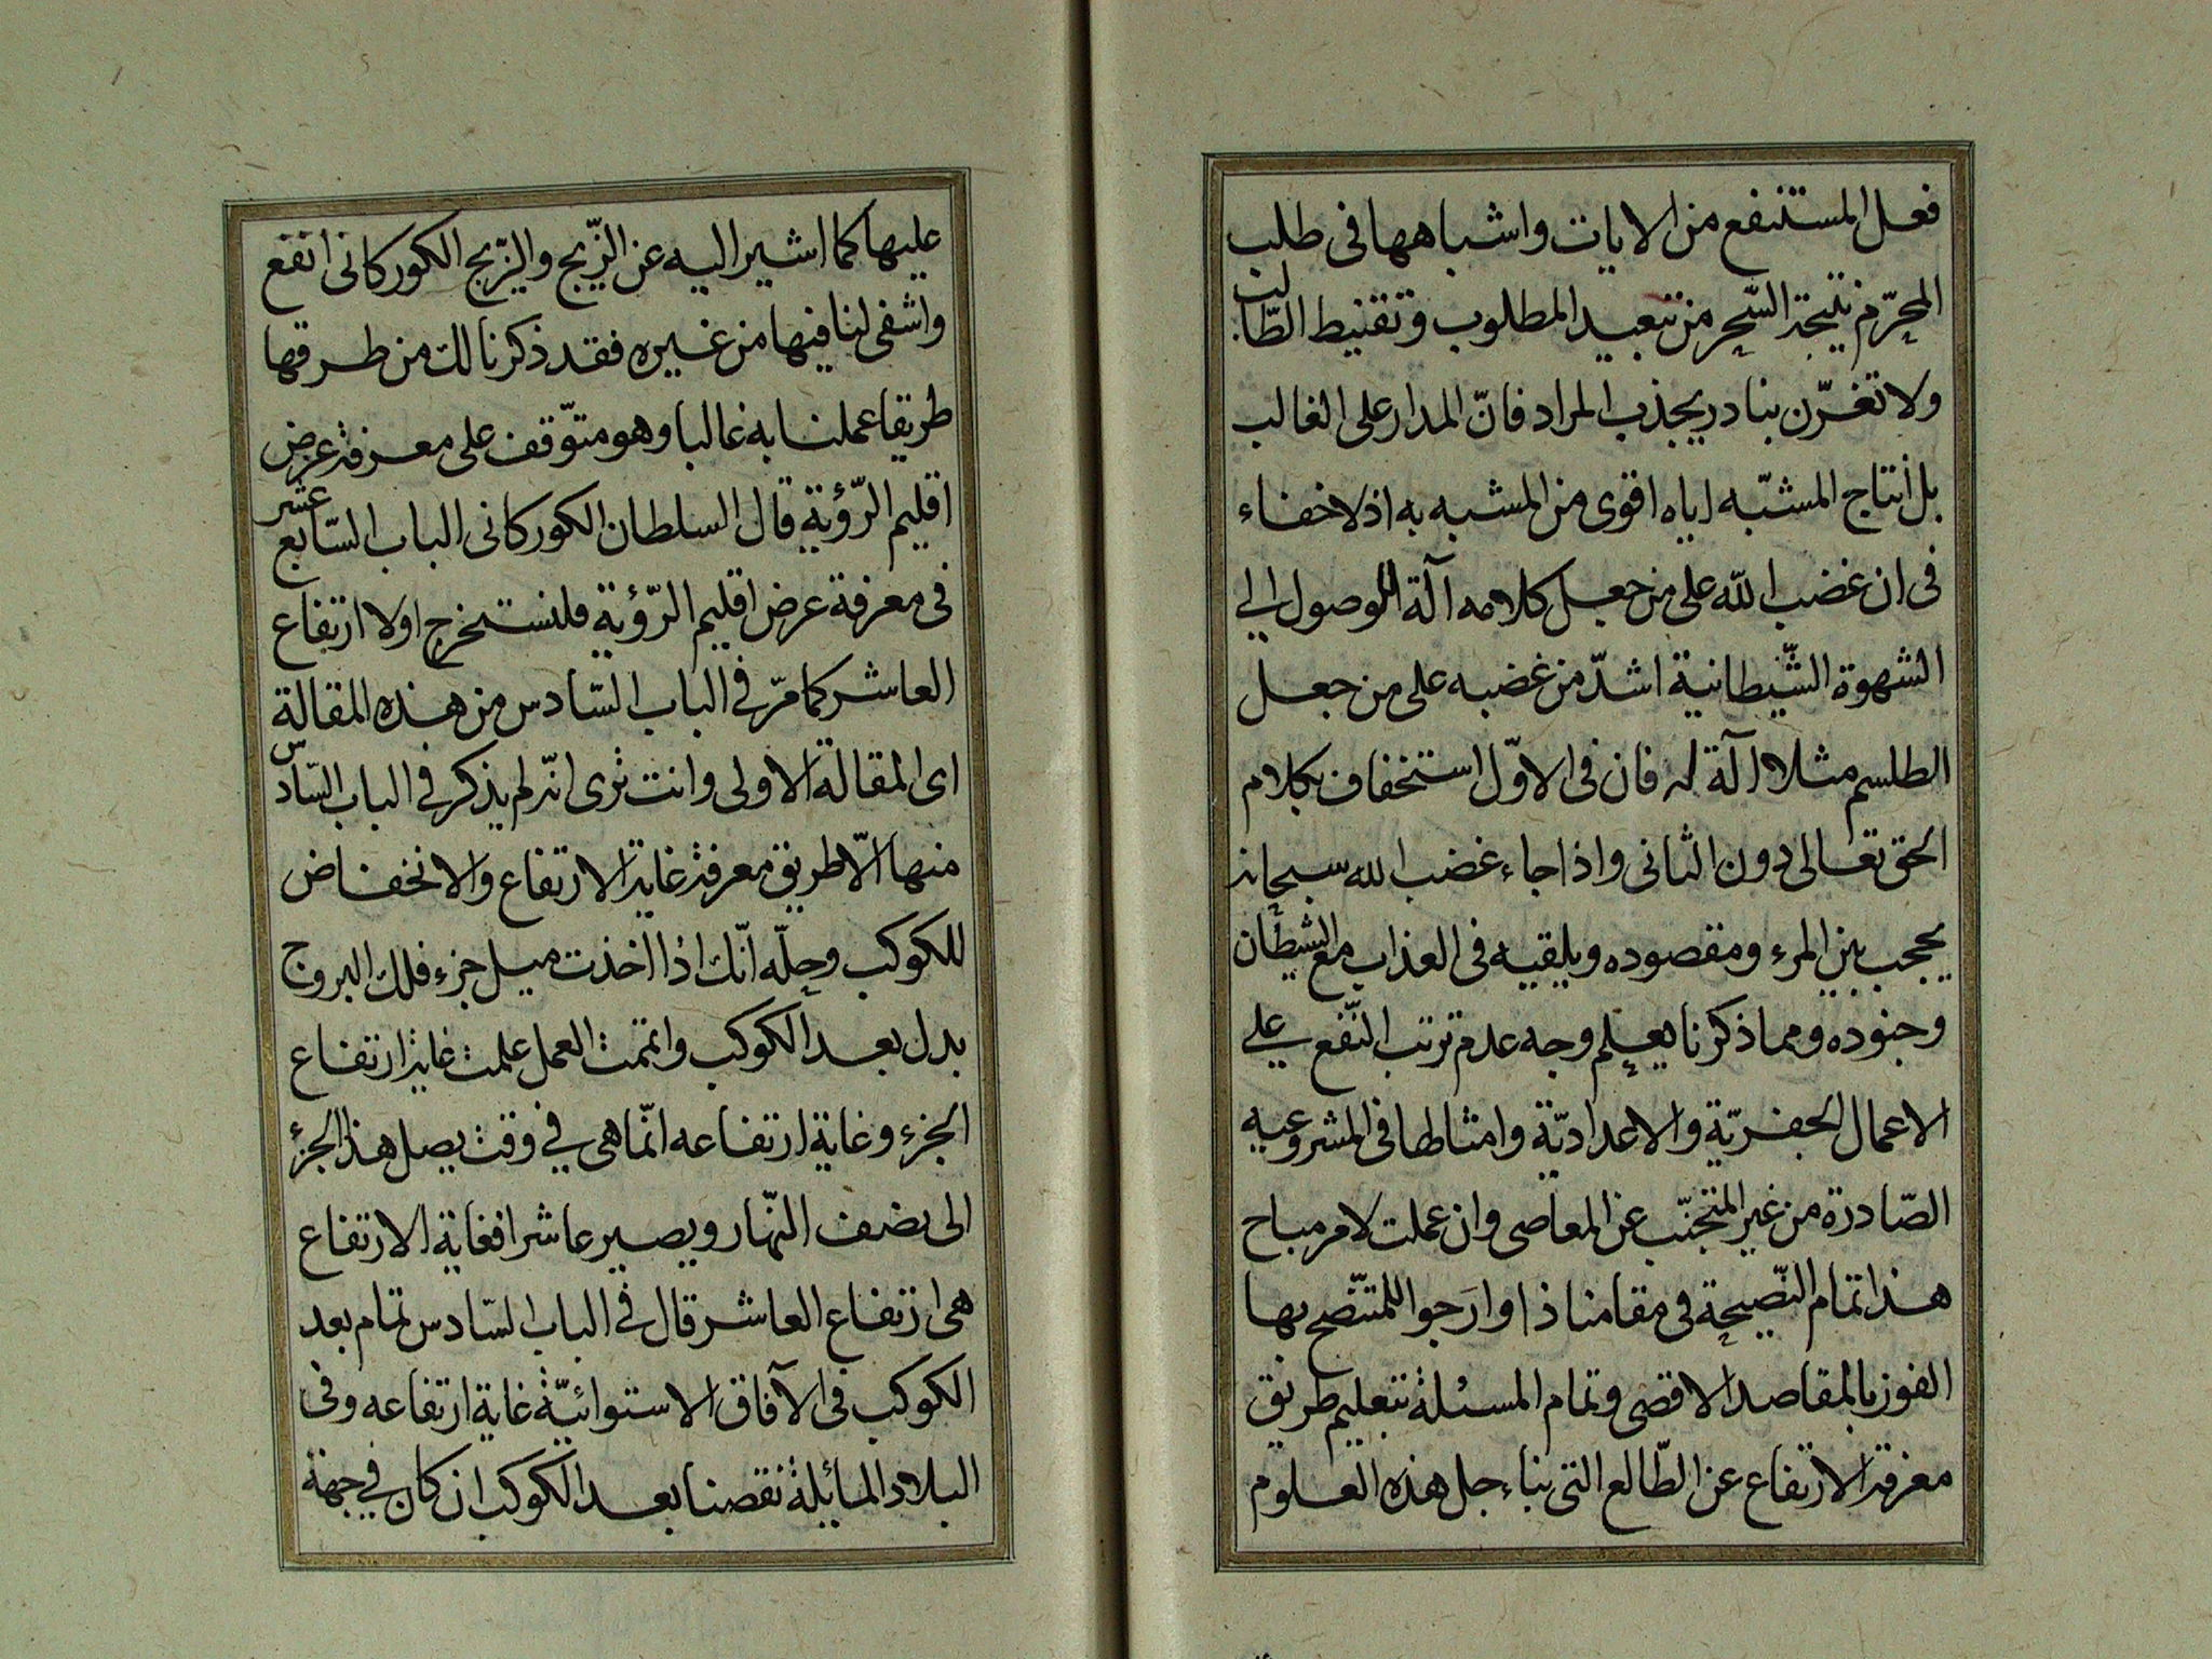 فعل المستنفع من الايات واشباهها فى طلب
المحرّم نتيجة السّحر من تبعيد المطلوب وتقنيط الطّالب
ولا تغرّن بنادر يجذب المراد فانّ المدار على الغالب
بل انتاج المشبّه اياه اقوى من المشبه به اذ لا خفاء
فى ان غضب الله على من جعل كلامه آلة للوصول الى
الشهوة الشّيطانية اشدّ من غضبه على من جعل
الطلسم مثلا آلة له فان فى الاوّل استخفاف بكلام
الحق تعالى دون الثانى واذا جاء غضب الله سبحانه
يحجب بين المرء ومقصوده ويلقيه فى العذاب مع الشيطان
وجنوده ومما ذكرنا يعلم وجه عدم ترتب النّفع على
الاعمال الجفريّة والاعداديّة وامثالها فى المشروعيه
الصّادرة من غير المتجنّب عن المعاصى وان عملت لامر مباح
هذا تمام النّصيحة فى مقامنا ذا وارَجوا للمتنّصح بها
الفوز بالمقاصد الاقصى وتمام المسئلة بتعليم طريق
معرفة الارتفاع عن الطّالع التى بناء جل هذه العلوم
عليها كما اشير اليه عن الزّيج والزّيج الكوركانى انفع
واشفى لنا فيها من غيره فقد ذكرنا لك من طرقها
طريقا عملنا به غالبا وهو متوّقف على معرفة عرض
اقليم الرّؤية قال السلطان الكوركانى الباب السّابع عشر
فى معرفة عرض اقليم الرّؤية فلنستخرج اولا ارتفاع
العاشر كما مرّ فى الباب السّادس من هذه المقالة
اى المقالة الاولى وانت ترى انّه لم يذكر فى الباب السّادس
منها الّا طريق معرفة غاية الارتفاع والانخفاض
للكوكب وحلّه انّك اذا اخذت ميل جزء فلك البروج
بدل بعد الكوكب واتممت العمل علمت غاية ارتفاع
الجزء وغاية ارتفاعه انّما هى فى وقت يصل هذا الجزء
الى نصف النّهار ويصير عاشرا فغاية الارتفاع
هى ارتفاع العاشر قال فى الباب السّادس تمام بعد
الكوكب فى الآفاق الاستوائيّة غاية ارتفاعه وفى
البلاد المائلة نقصنا بعد الكوكب ان كان فى جهة